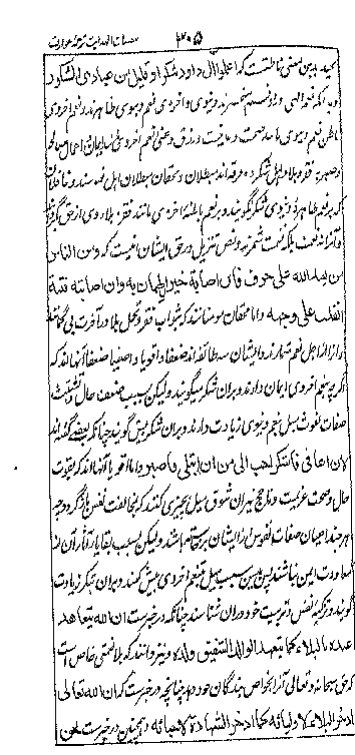 مصباح الهدایت ترجمهٔ عوارف
۴۰۵
مجید بدین معنی ناطقست که اعملوا آل داود شکرا و قلیل من عبادی الشکور
و بدانکه نعم الهی دو قسمند دنیوی و اخروی نعم دنیوی ظاهر
باطن نعم دنیوی مانند صحت و عافیت و رزق و نعم اخروی مانند ایمان و اعمال صالحه
و صبر بر فقر و بلا و اهل شکر دو فرقه‌اند مبطلان و محقان مبطلان اهل
که بر نعم ظاهره دنیوی شکر گویند و بر نعم باطنه اخروی مانند فقر و بلا روی از حق بگردانند
و آنرا نعمت بلکه نقمت شمرند و نص تنزیل در حق ایشان اینست که و من الناس
من یعبد الله علی حرف فان اصابه خیر اطمان به و ان اصابته فتنة
انقلب علی وجهه و اما محقان مومنانند که ثواب فقر و تحمل بلا در آخرت
را از اجل نعم شمارند و ایشان سه طائفه‌اند ضعفا و اقویا و اصفیا ضعفا آنها اند که
اگرچه بنعیم اخروی ایمان دارند و بران شکر میگویند ولیکن بسبب ضعف حال و تشبث
صفات نفوس میل بنعیم دنیوی زیادت دارند و بران شکر بیش گویند چنانکه بعضی گفته اند
لان اعافی فاشکر احب الی من ان ابتلی فاصبر و اما اقویا آنها اند که بقوت
حال و صحت عزیمت و شوق میل بچیزی کنند که بمخالفت نفس بازگردد و
هرچند اعیان صفات نفوس از ایشان برخاسته باشد ولیکن بسبب بقایا آثار آن از
معاودت ایمن نباشند پس بدین سبب میل بنعیم اخروی بیش کنند و بران شکر زیادت
گویند و تزکیه نفس و تربیت خود دران شناسند چنانکه در خبرست ان الله یتعاهد
عبده بالبلاء کما یتعهد الوالد الشفیق ولده و نیز دانند که بلا نعمتی خاص است
که حق سبحانه و تعالی آنرا بخواص بندگان خود دهد چنانچه در خبرست که ان الله تعالی
ادخر البلاء لاولیائه کما ادخر الشهادة لاحبائه و همچنین در خبرست